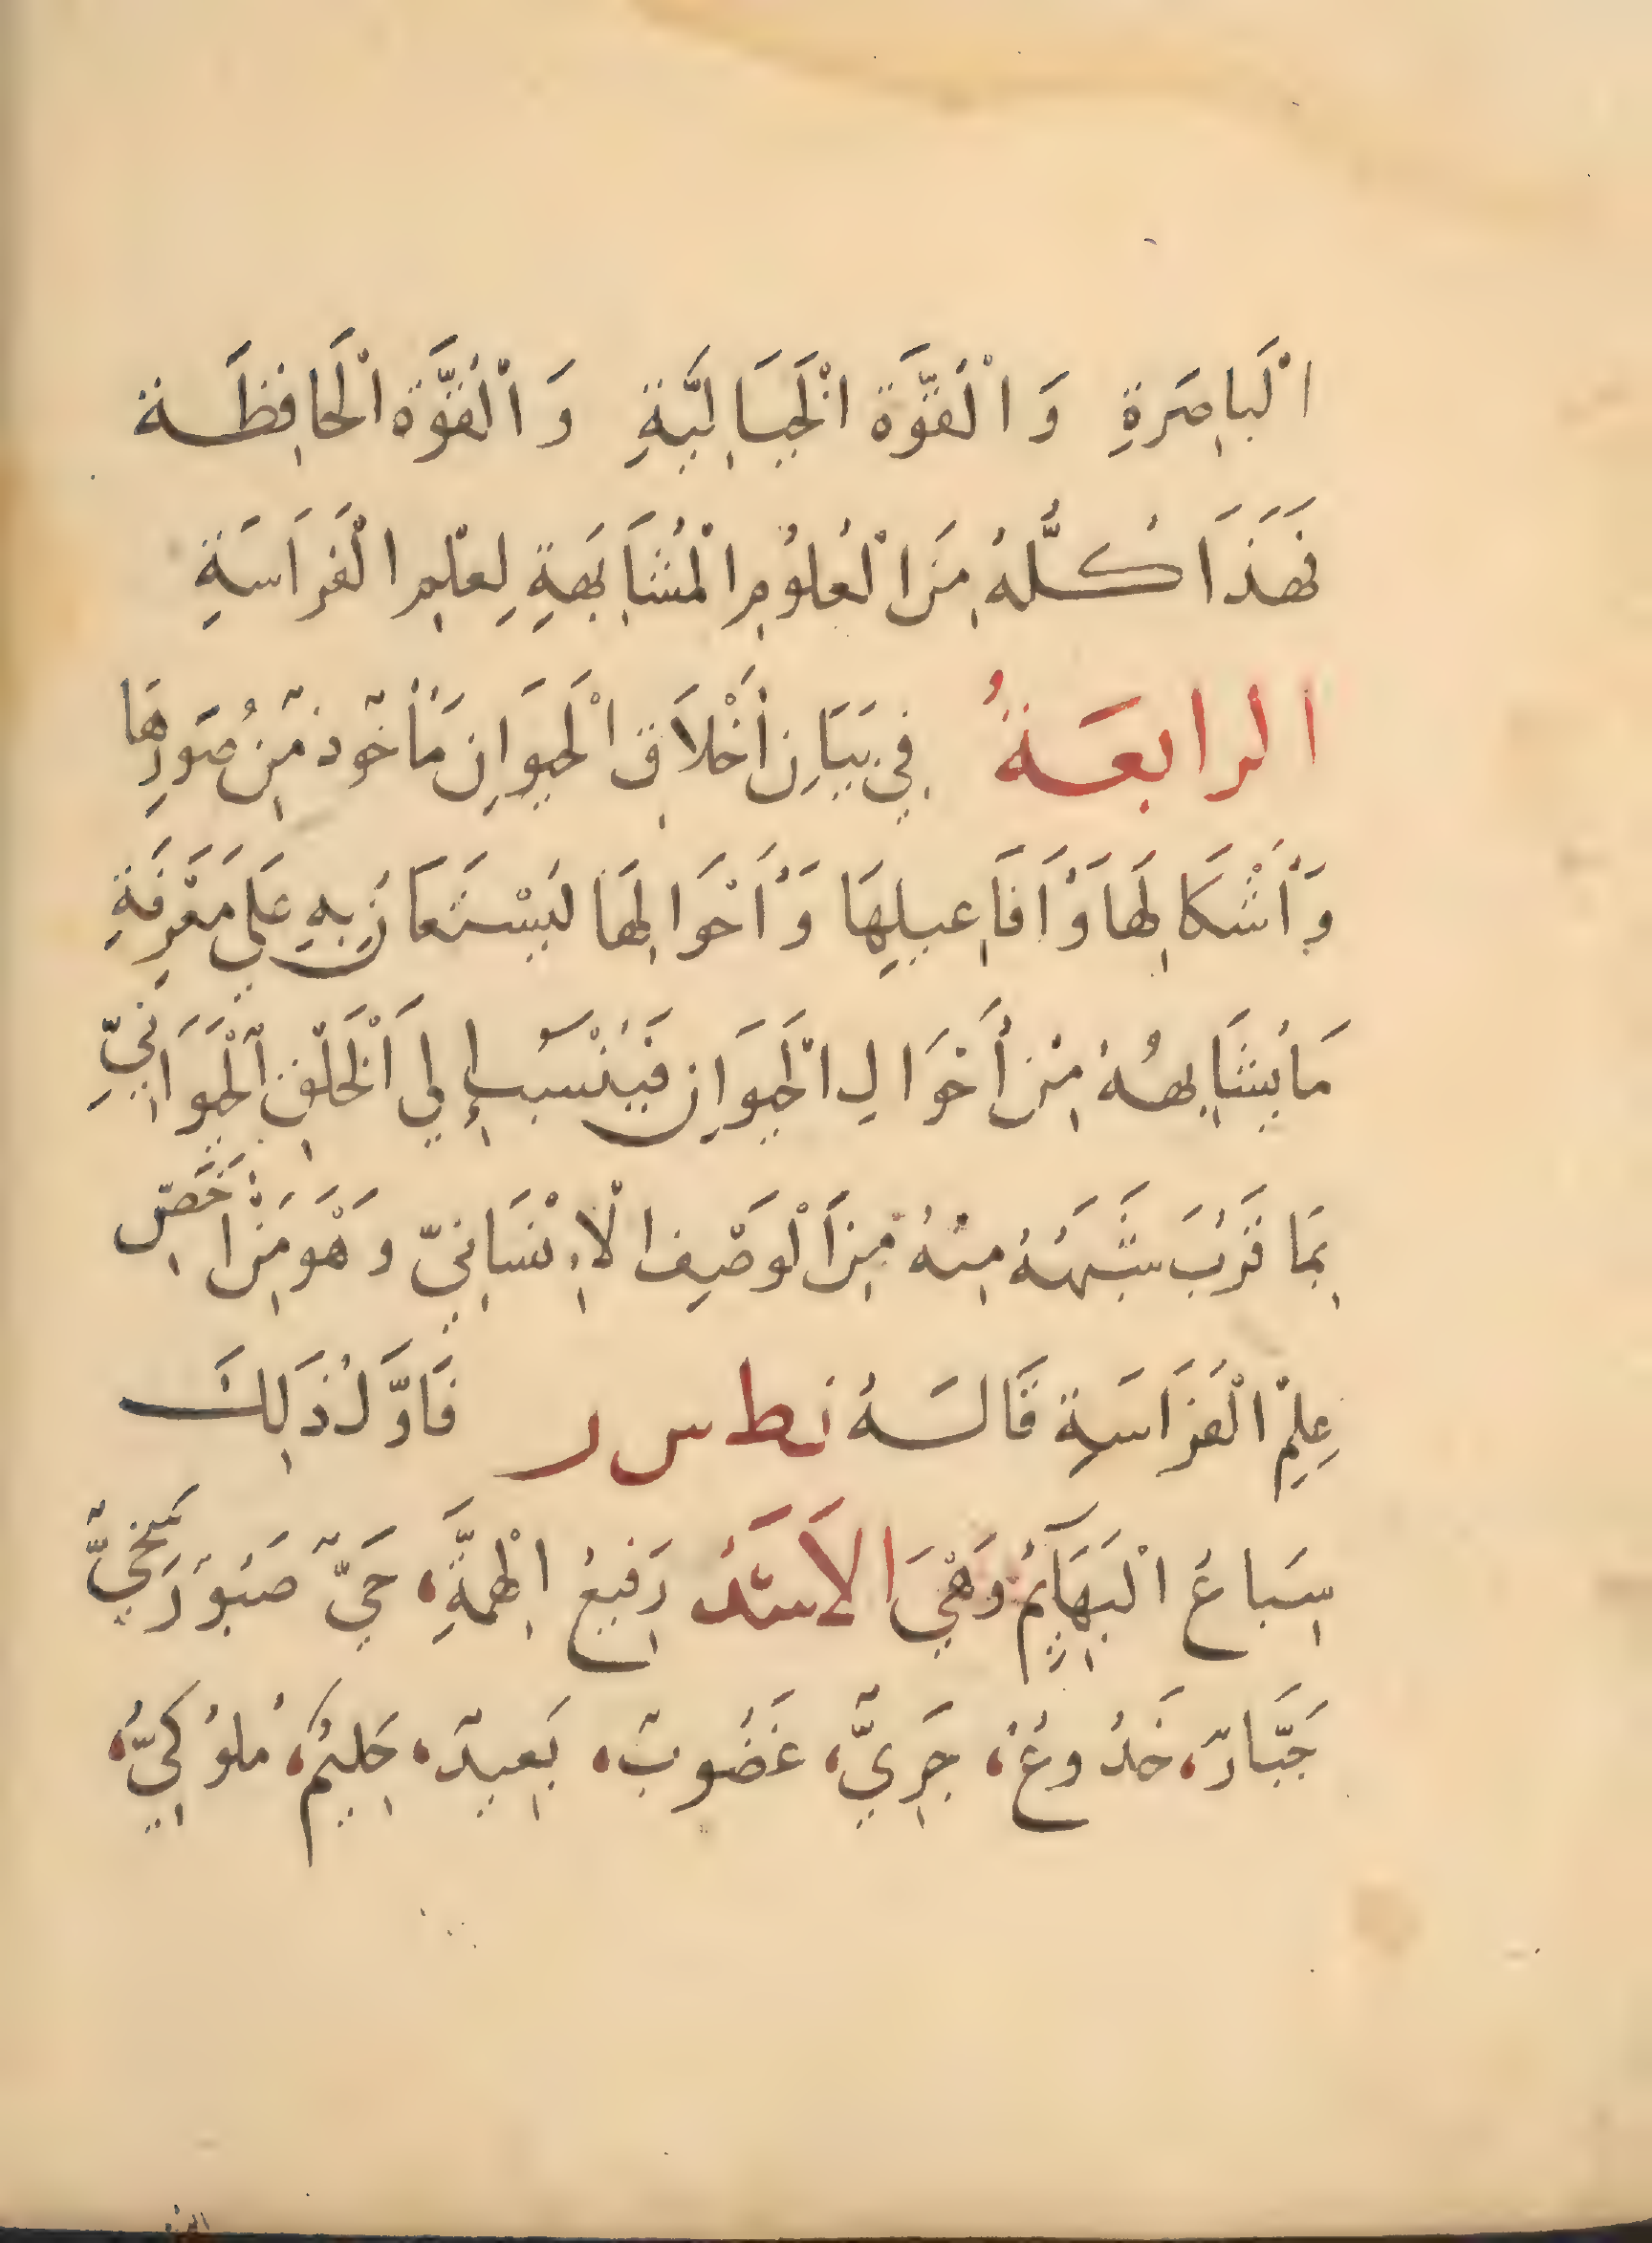 الْبَاصِرَةِ وَالْقُوَّةِ الْخَيَالِيَّةِ وَالْقُوَّةِ الْحَافِظَة
فَهَذَا كُلُّهُ مِنَ الْعُلُوُمِ الْمُشَابِهَةِ لِعِلْمِ الْفَرَاسَةِ
الرابعَةُ فِي بَيَانِ أَخْلَاقِ الْحَيَوَانِ مَأْخُوذٌ مِنْ صُوَرِهَا
وَأَشْكَالِهَا وَأَفَاعِيلِهَا وَأَحْوَالِهَا لِيَسْتَعَانَ بِهِ عَلَي مَعْرِفَةِ
مَا يُشَابِهُهُ مِنْ أَحْوَالِ الْحَيَوَانِ فَيُنْسَبُ إِلَي الْخَلْقِ الْحَيَوَانِيِّ
بِمَا قَرُبَ شَبَهُهُ مِنْهُ مِنَ الْوَصْفِ الْاِنْسَانِيّ وَهْوَ مِنْ اَخَصِّ
عِلِمْ الْفَرَاسَةِ قَالَهُ نط س ر فَاوَّلُ ذَلِكَ
سِبَاعُ الْبَهَايِمُ وَهْيَ الأَسَدُ رَفِيعُ الْهِمَّةِ، حَيِيٌّ صَبُوْرٌ سَخِيٌّ
جَبَّارٌ، خَدُوعٌ، جَرِيٌّ، غَضُوبٌ، بَعِيدٌ، حَلِيْمٌ، مُلُوْكِيٌّ،